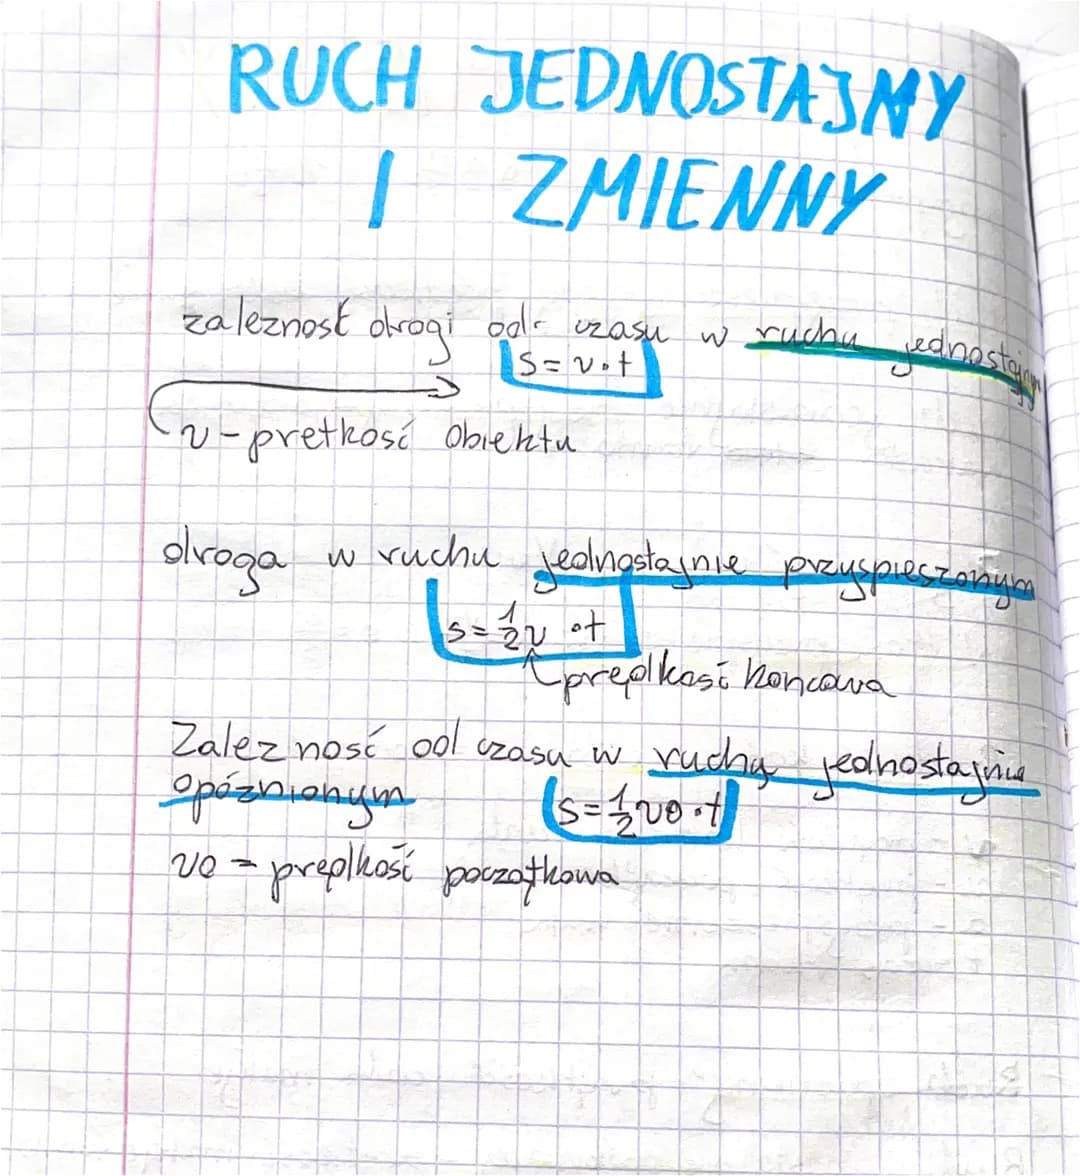 RUCH JEDNOSTAJNY
I ZMIENNY
zależność drogi od czasu w ruchu jednostajnym
s = v · t
v - prętkość obiektu
droga w ruchu jednostajnie przyspieszonym
s = 1/2 v · t
prędkość końcowa
Zależność od czasu w ruchu jednostajnie
opóźnionym s = 1/2 v0 · t
v0 = prędkość początkowa